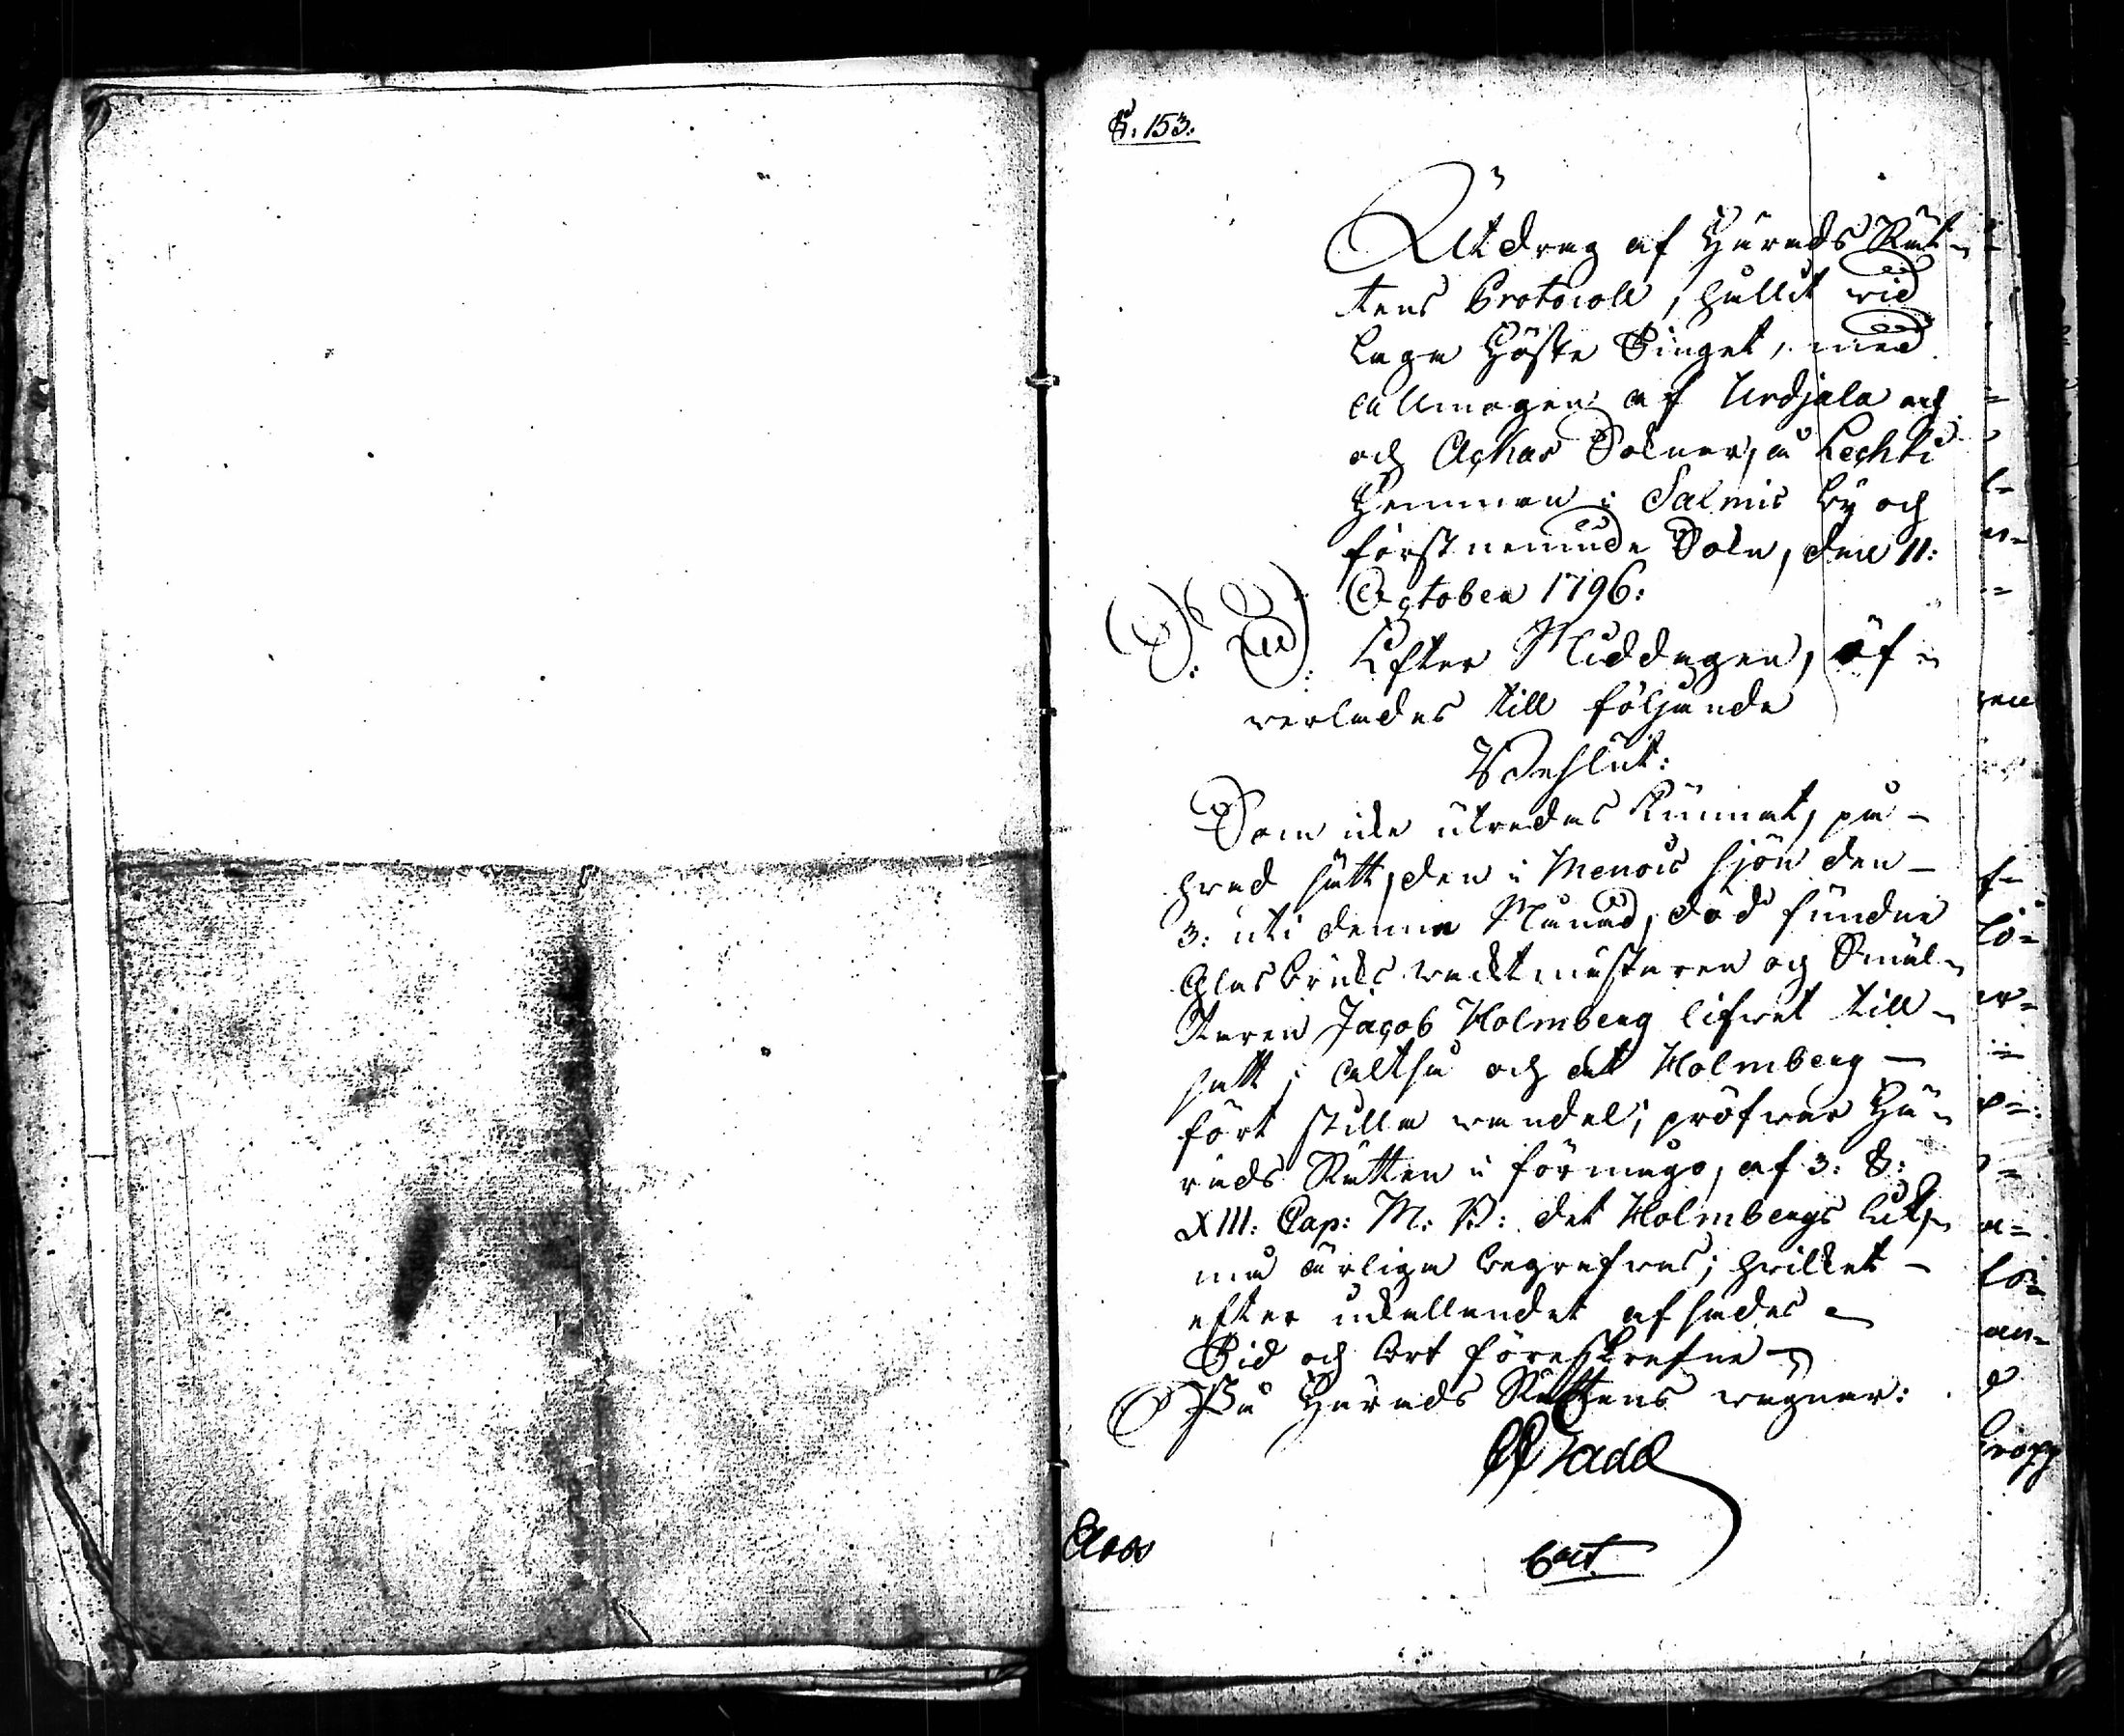 S. 153.
Utdrag af Härads Rät-
tens Protocoll, hållit wid
Laga Höste Tinget, med
allmogen af Urdjala och
och Ackas Soknar, å Lechti
Hemman i Salmis by och
förstnemnde Sokn, den 11:
October 1796:
Efter Middagen, öf-
verlades till följande
Beslut:
Som icke utredas kunnat, på-
hvad sätt, den i Menois sjön den-
3: uti denna Månad, död fundne
Glasbruks wacktmästaren och Smäl-
taren Jacob Holmberg lifwet till-
satt; altså och at Holmberg-
fört stilla wandel; pröfwar Hä-
rads Rätten i förmågo, af 3: §:
XIII: Cap: M: B: det Holmbergs lik,
må ärliga begrafwas; hvilket-
efter udkallandet afsades
Tid och Ort föreskrefne
På Härads Rättens wägnar:
Gadd